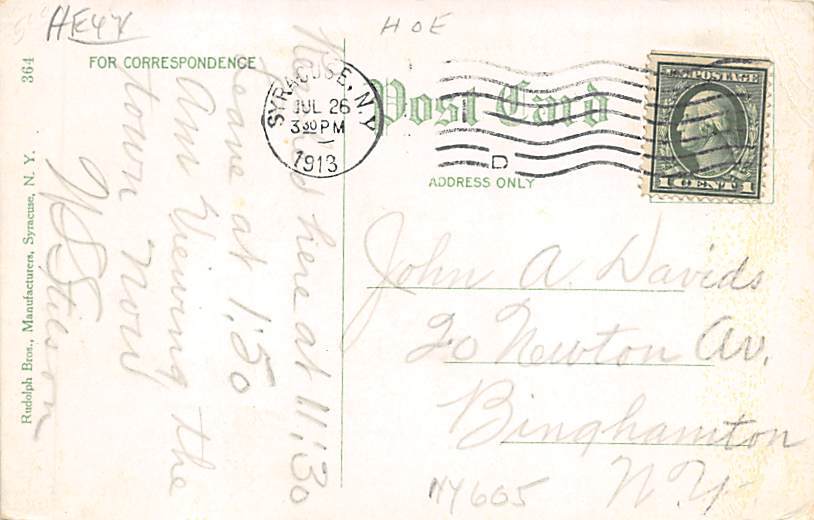 HE4X
HOE
364
FOR CORRESPONDENCE
Post Card
SYRACUSE, N.Y.
JUL 26
3 30 PM
1913
D
U.S. POSTAGE
1 CENT 1
ADDRESS ONLY
here at 11:30
Leave at 1:50
Am Viewing the
town now
John A. Davids
20 Newton Av.
Binghamton
N.Y.
NY605
Rudolph Bros., Manufacturers, Syracuse, N. Y.